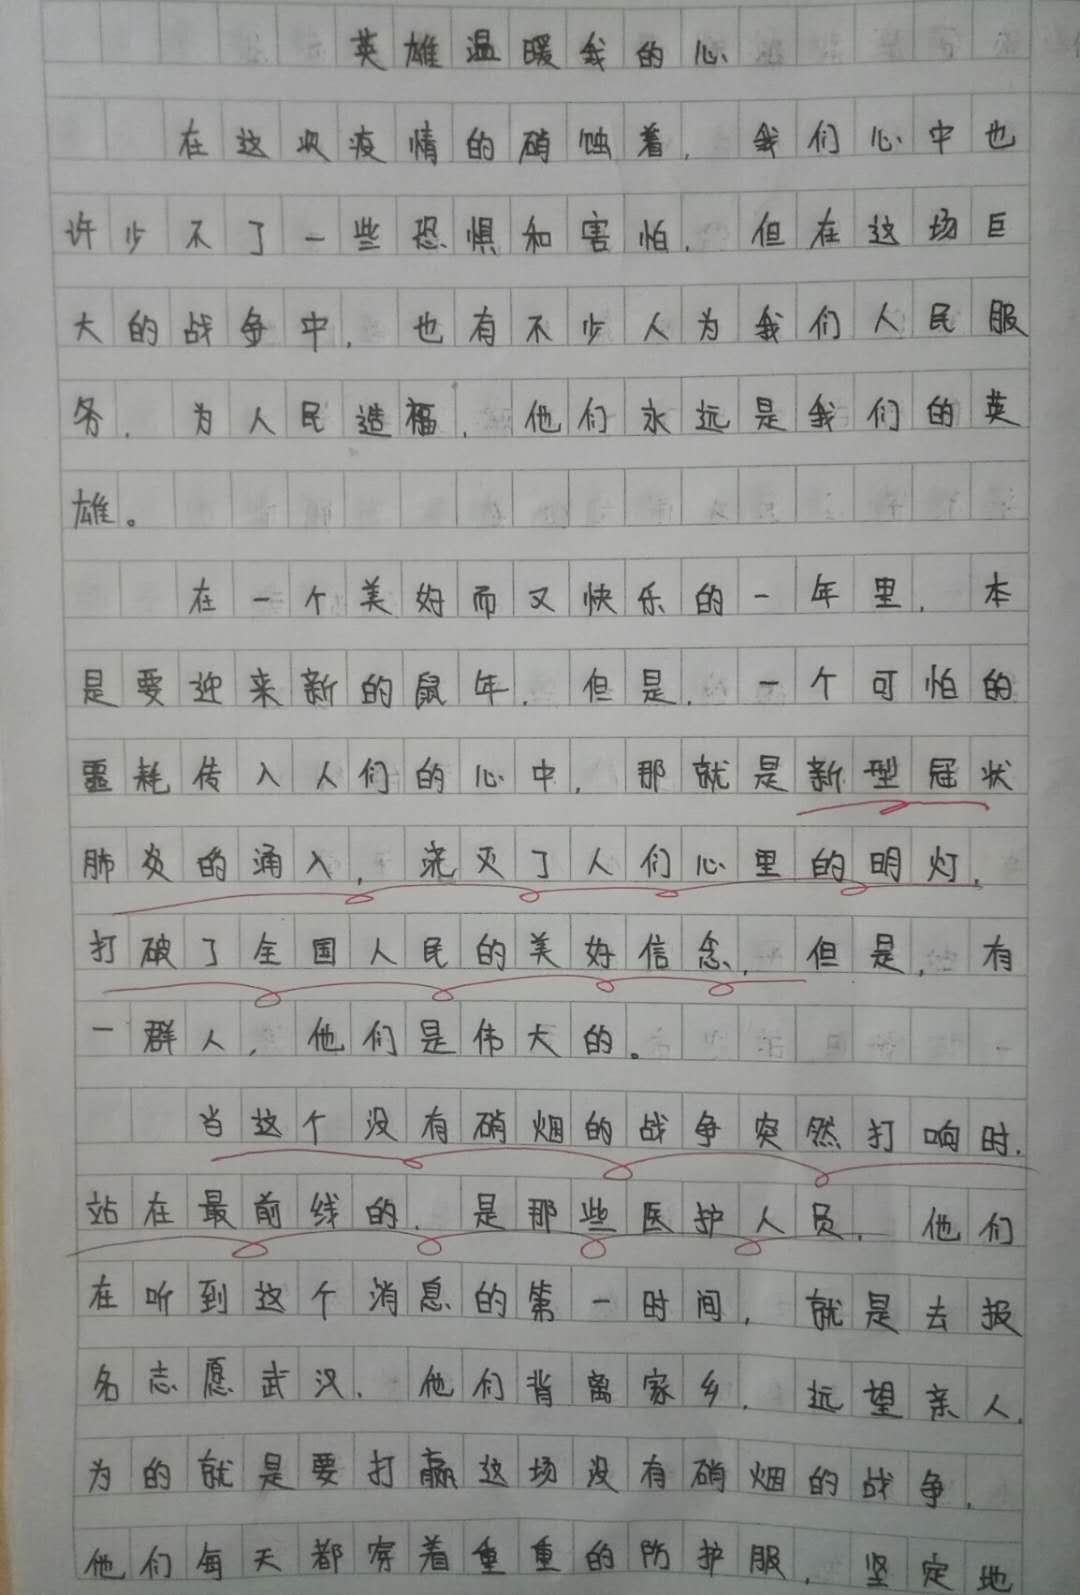 英雄温暖我的心
在这次疫情的硝蚀着，我们心中也
许少不了一些恐惧和害怕，但在这场巨
大的战争中，也有不少人为我们人民服
务，为人民造福，他们永远是我们的英
雄。
在一个美好而又快乐的一年里，本
是要迎来新的鼠年，但是，一个可怕的
噩耗传入人们的心中，那就是新型冠状
肺炎的涌入，浇灭了人们心里的明灯，
打破了全国人民的美好信念，但是，有
一群人，他们是伟大的。
当这个没有硝烟的战争突然打响时，
站在最前线的，是那些医护人员，他们
在听到这个消息的第一时间，就是去报
名志愿武汉，他们背离家乡，远望亲人，
为的就是要打赢这场没有硝烟的战争，
他们每天都穿着重重的防护服，坚定地